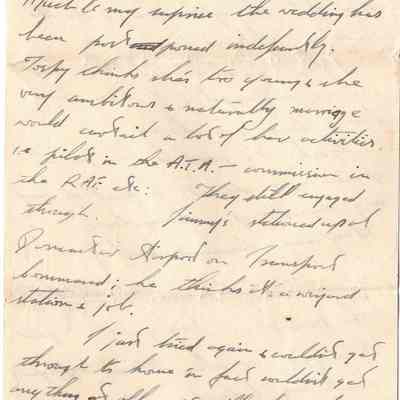 Much to my suprise the wedding has
been postponed indefinitely.
Topsy thinks she's too young & she
very ambitious & naturally marriage
would curtail a lot of her activities.
i.e pilot in the A.T.A. – commission in
the R.A.F. etc: They still engaged
though. Jimmy's stationed up at
Airport on Transport
Command; he thinks it's a wizard
station & job.
I just tried again & couldn't get
through to home in fact couldn't get
anything at all